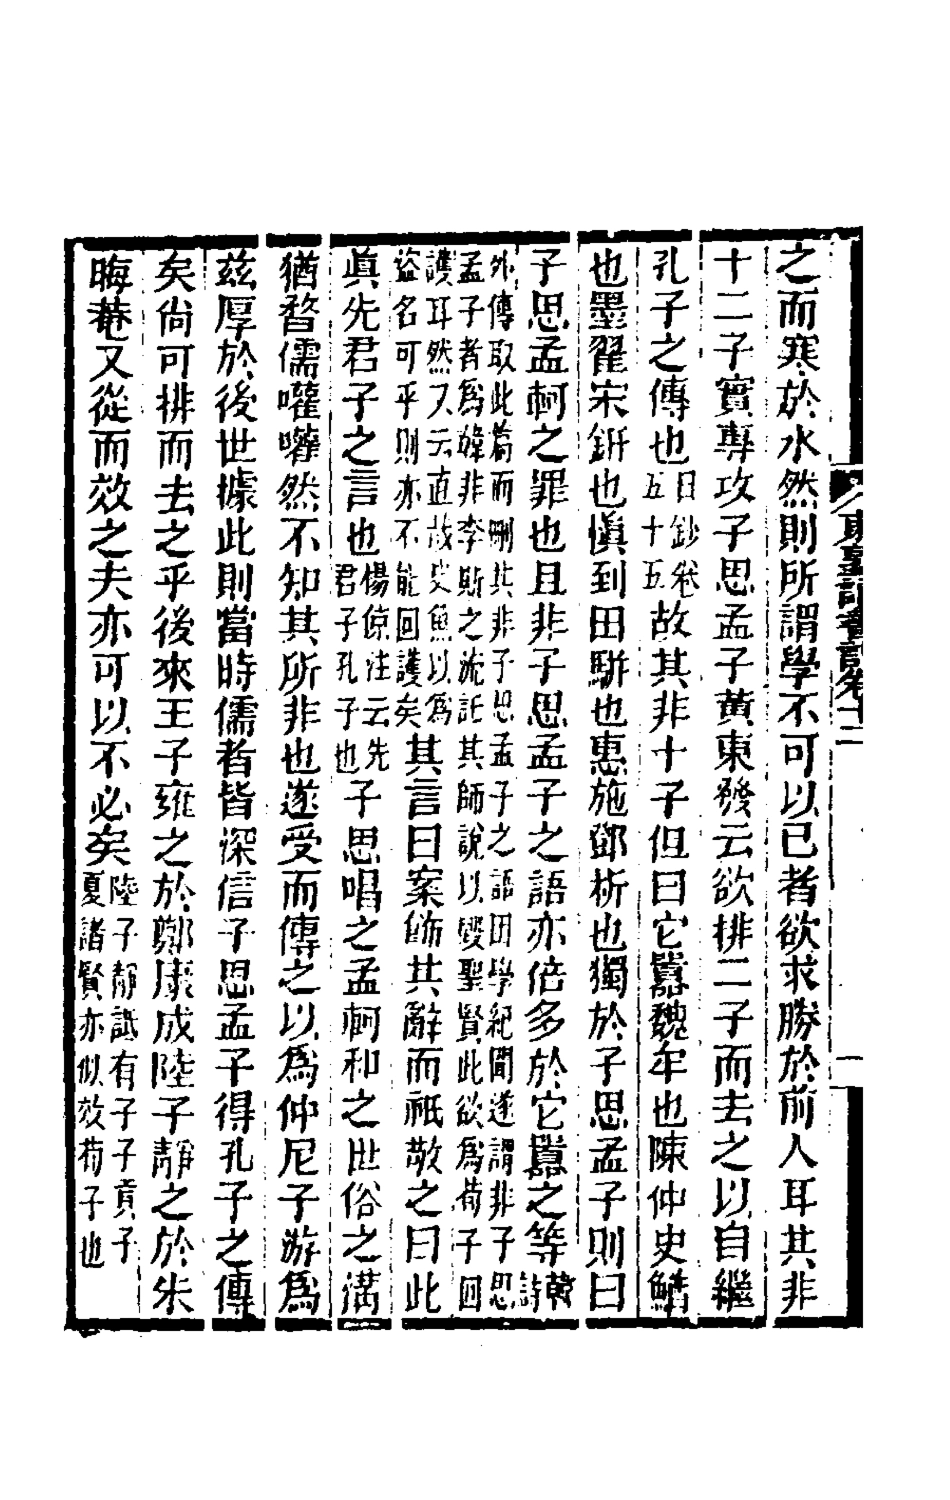 東塾讀書記卷十二
一
之而寒於水然則所謂學不可以已者欲求勝於前人耳其非
十二子實專攻子思孟子黃東發云欲排二子而去之以自繼
孔子之傳也日鈔卷五十五故其非十子但曰它囂魏牟也陳仲史鰌
也墨翟宋鈃也愼到田駢也惠施鄧析也獨於子思孟子則曰
子思孟軻之罪也且非子思孟子之語亦倍多於它囂之等韓詩
外傳取此篇而刪其非子思孟子之語困學紀聞遂謂非子思
孟子者爲韓非李斯之流託其師說以毀聖賢此欲爲荀子回
護耳然又云直故史魚以爲
盜名可乎則亦不能回護矣其言曰案飾其辭而祇敬之曰此
眞先君子之言也楊倞注云先君子孔子也子思唱之孟軻和之世俗之溝
猶瞀儒嚾嚾然不知其所非也遂受而傳之以爲仲尼子游爲
茲厚於後世據此則當時儒者皆深信子思孟子得孔子之傳
矣尙可排而去之乎後來王子雍之於鄭康成陸子靜之於朱
晦菴又從而效之夫亦可以不必矣陸子靜詆有子子貢子
夏諸賢亦似效荀子也